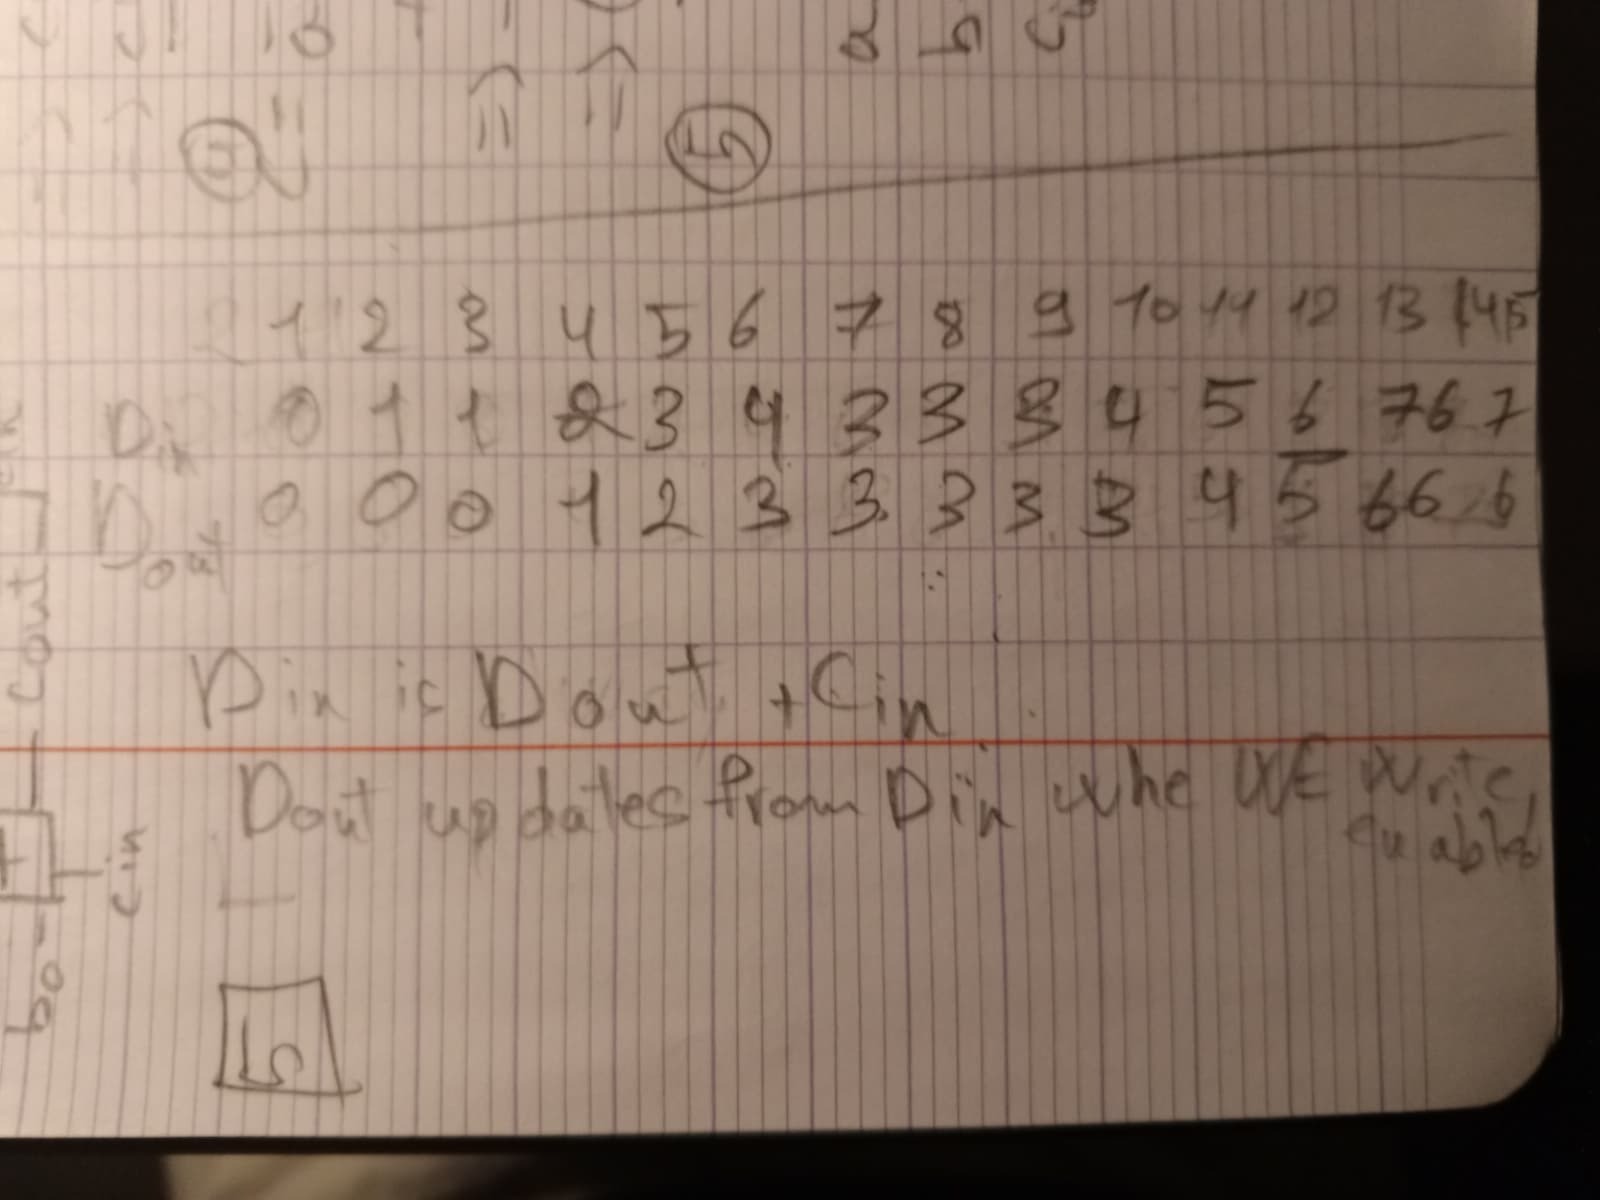 a b c
4
5
1 2 3 4 5 6 7 8 9 10 11 12 13 14 15
Din 0 1 1 2 3 4 3 3 3 4 5 6 7 6 7
Dout 0 0 0 1 2 3 3 3 3 3 4 5 6 6 6
Din is Dout + Cin
Dout updates from Din whe WE Write
enables
5
Cout
+
b0
Cin